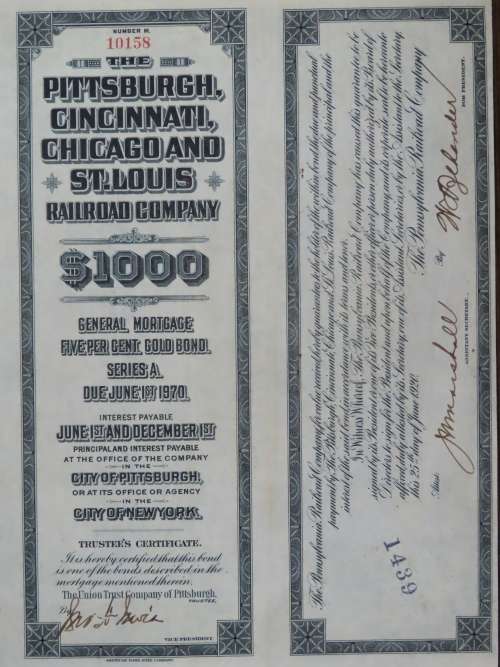 NUMBER M.
10158
THE
PITTSBURGH,
CINCINNATI,
CHICAGO AND
ST. LOUIS
RAILROAD COMPANY
$1000
GENERAL MORTGAGE
FIVE PER CENT. GOLD BOND.
SERIES A.
DUE JUNE 1ST 1970.
INTEREST PAYABLE
JUNE 1ST AND DECEMBER 1ST
PRINCIPAL AND INTEREST PAYABLE
AT THE OFFICE OF THE COMPANY
IN THE
CITY OF PITTSBURGH,
OR AT ITS OFFICE OR AGENCY
IN THE
CITY OF NEW YORK.
TRUSTEE'S CERTIFICATE.
It is hereby certified that this bond
is one of the bonds described in the
mortgage mentioned therein.
The Union Trust Company of Pittsburgh,
TRUSTEE,
By
VICE PRESIDENT.
AMERICAN BANK NOTE COMPANY.
The Pennsylvania Railroad Company, for value received, hereby guarantees to the holder of the within bond, the due and punctual
payment by The Pittsburgh, Cincinnati, Chicago and St. Louis Railroad Company of the principal and the
interest of the said bond in accordance with its terms and tenor.
In Witness Whereof, The Pennsylvania Railroad Company has caused this guarantee to be
signed by its President or one of its Vice Presidents, or other officer or person duly authorized by its Board of
Directors to sign for the President and upon behalf of the Company, and its corporate seal to be hereunto
affixed, duly attested by its Secretary, one of its Assistant Secretaries, or by the Assistant to the Secretary,
this 25th day of June 1920.
The Pennsylvania Railroad Company
Attest
By
ASSISTANT SECRETARY.
FOR PRESIDENT.
1439